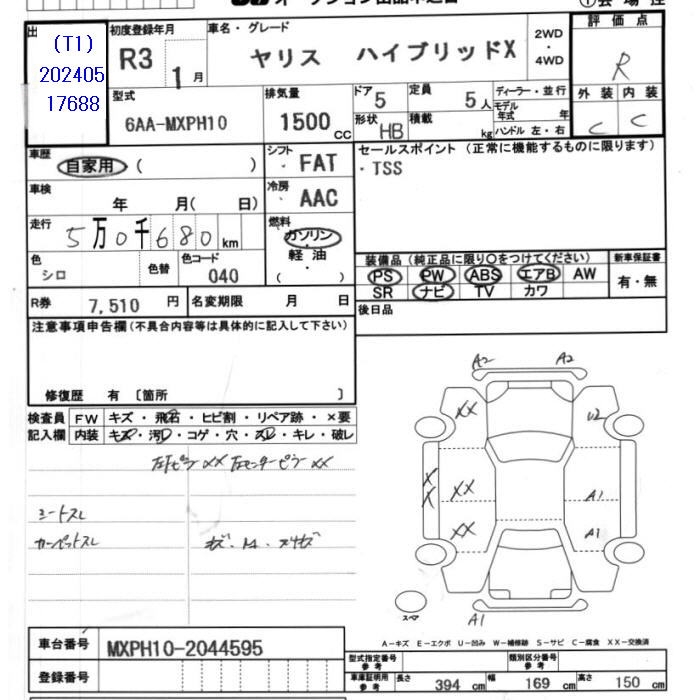 ①会場控
出
(T1)
202405
17688
初度登録年月
R3 1月
車名・グレード
ヤリス ハイブリッドX
2WD
・
4WD
評価点
R
外装 内装
C C
型式
6AA-MXPH10
排気量
1500 CC
ドア 5
形状 HB
定員 5人
積載 kg
ディーラー・並行
モデル年式 年
ハンドル 左・右
車歴
自家用 ( )
シフト
・FAT
セールスポイント (正常に機能するものに限ります)
・TSS
車検
年 月( 日)
冷房
・AAC
走行
5万0千680km
燃料
ガソリン
軽・油
( )
色
シロ
色替
色コード
040
装備品 (純正品に限り〇をつけてください)
PS PW ABS エアB AW
SR ナビ TV カワ
新車保証書
有・無
R券 7,510 円
名変期限 月 日
後日品
注意事項申告欄(不具合内容等は具体的に記入して下さい)
修復歴 有 〔箇所 〕
検査員 FW キズ・飛石・ヒビ割・リペア跡・×要
記入欄 内装 キズ・汚レ・コゲ・穴・スレ・キレ・破レ
左Fピラ XX 左センターピラー XX
シートスレ
カーペットスレ
A2 A2
XX W2
XX
XX A1
XX A1
A1
スペア
A-キズ E-エクボ U-凹み W-補修跡 S-サビ C-腐食 XX-交換済
車台番号 MXPH10-2044595
登録番号
型式指定番号
参考
類別区分番号
参考
車庫証明用
参考
長さ 394 cm 幅 169 cm 高さ 150 cm